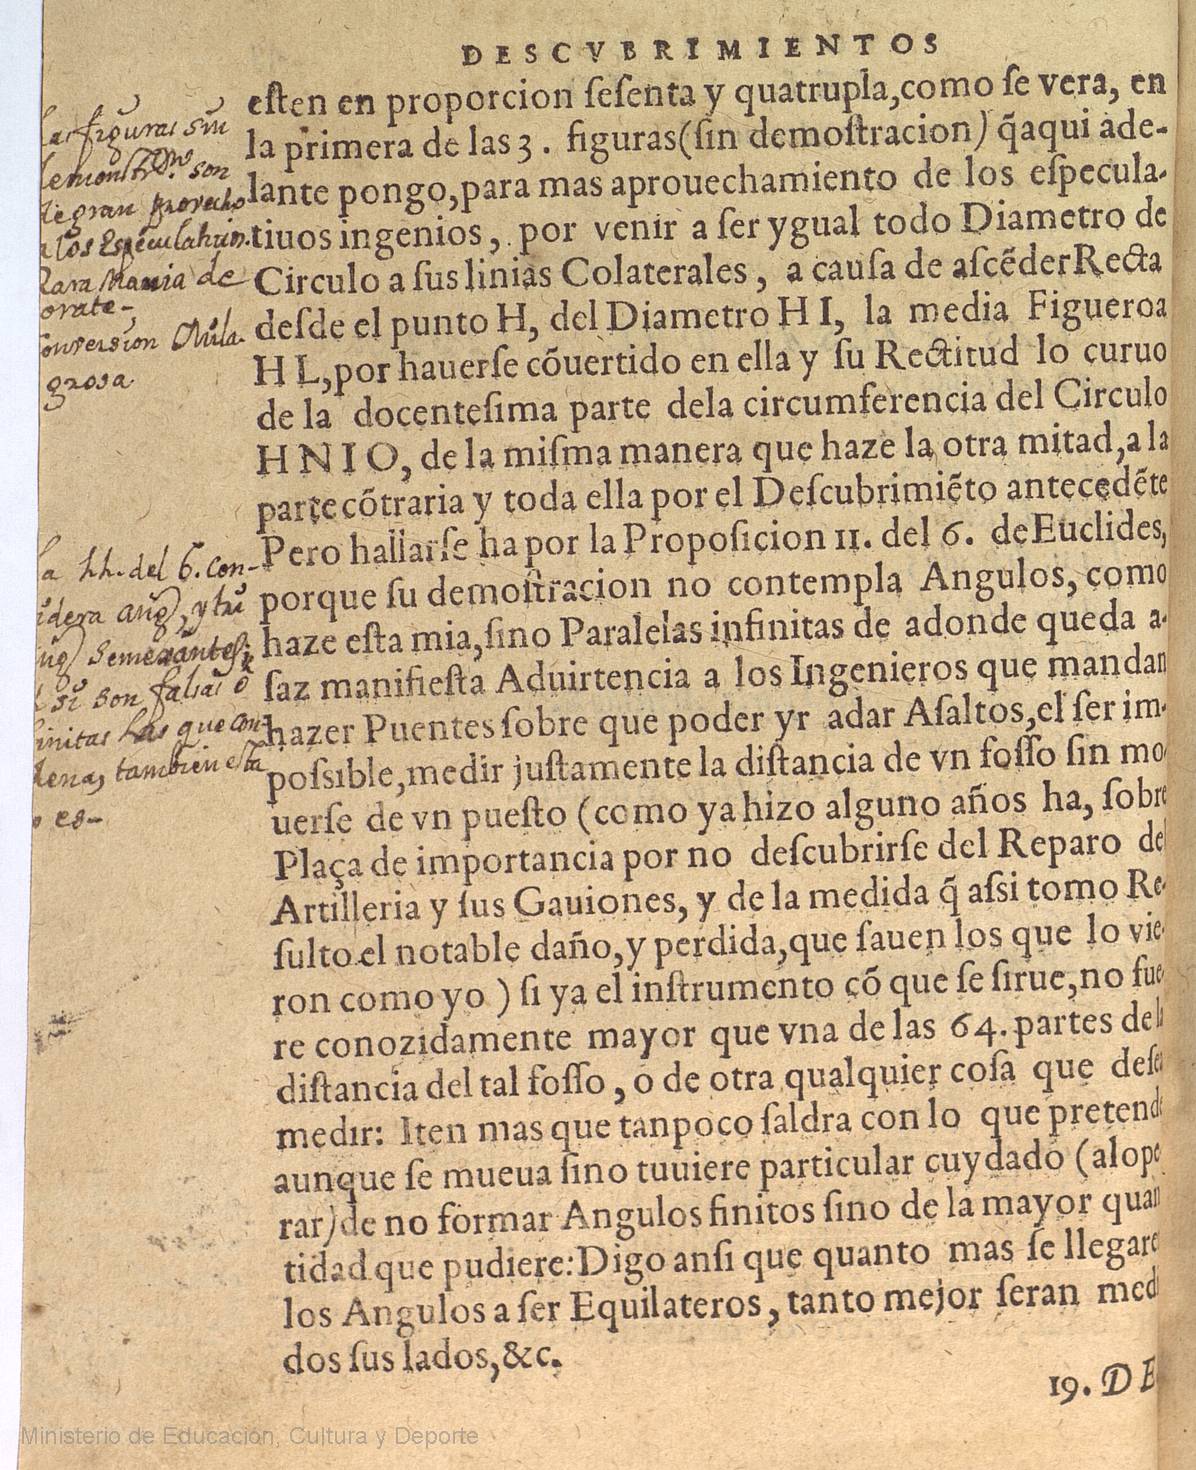 DESCVBRIMIENTOS
eſten en proporcion ſeſenta y quatrupla,como ſe vera, en
la primera de las 3. figuras(ſin demoſtracion) q̃aqui ade-
lante pongo,para mas aprouechamiento de los eſpecula-
tiuos ingenios, por venir a ſer ygual todo Diametro de
Circulo a ſus linias Colaterales, a cauſa de aſcẽder Recta
deſde el punto H, del Diametro H I, la media Figueroa
H L,por hauerſe cõuertido en ella y ſu Rectitud lo curuo
de la docenteſima parte dela circumferencia del Circulo
H N I O, de la miſma manera que haze la otra mitad,a la
parte cõtraria y toda ella por el Deſcubrimiẽto antecedẽte
Pero hallarſe ha por la Propoſicion 11. del 6. de Euclides,
porque ſu demoſtracion no contempla Angulos, como
haze eſta mia,ſino Paralelas infinitas de adonde queda a-
ſaz manifieſta Aduirtencia a los Ingenieros que mandan
hazer Puentes ſobre que poder yr a dar Aſaltos,el ſer im-
poſsible,medir juſtamente la diſtancia de vn foſſo ſin mo
uerſe de vn pueſto (como ya hizo alguno años ha, ſobre
Plaça de importancia por no deſcubrirſe del Reparo de
Artilleria y ſus Gauiones, y de la medida q̃ aſsi tomo Re-
ſulto el notable daño,y perdida,que ſauen los que lo vie-
ron como yo ) ſi ya el inſtrumento cõ que ſe ſirue,no fue-
re conozidamente mayor que vna de las 64. partes de la
diſtancia del tal foſſo, o de otra qualquier coſa que deſe
medir: Iten mas que tanpoco ſaldra con lo que pretende
aunque ſe mueua ſino tuuiere particular cuydado (al ope
rar) de no formar Angulos finitos ſino de la mayor quan
tidad que pudiere: Digo anſi que quanto mas ſe llegare
los Angulos a ſer Equilateros, tanto mejor ſeran med
dos ſus lados, &c.
19. DE
las figuras sin
son
de gran provecho
a los
Rara Mania de
orate-
Conversion Mila-
grosa
la 11. del 6. con-
y tu
si son falsas o
las que con-
tambien esta
es-
Ministerio de Educación, Cultura y Deporte